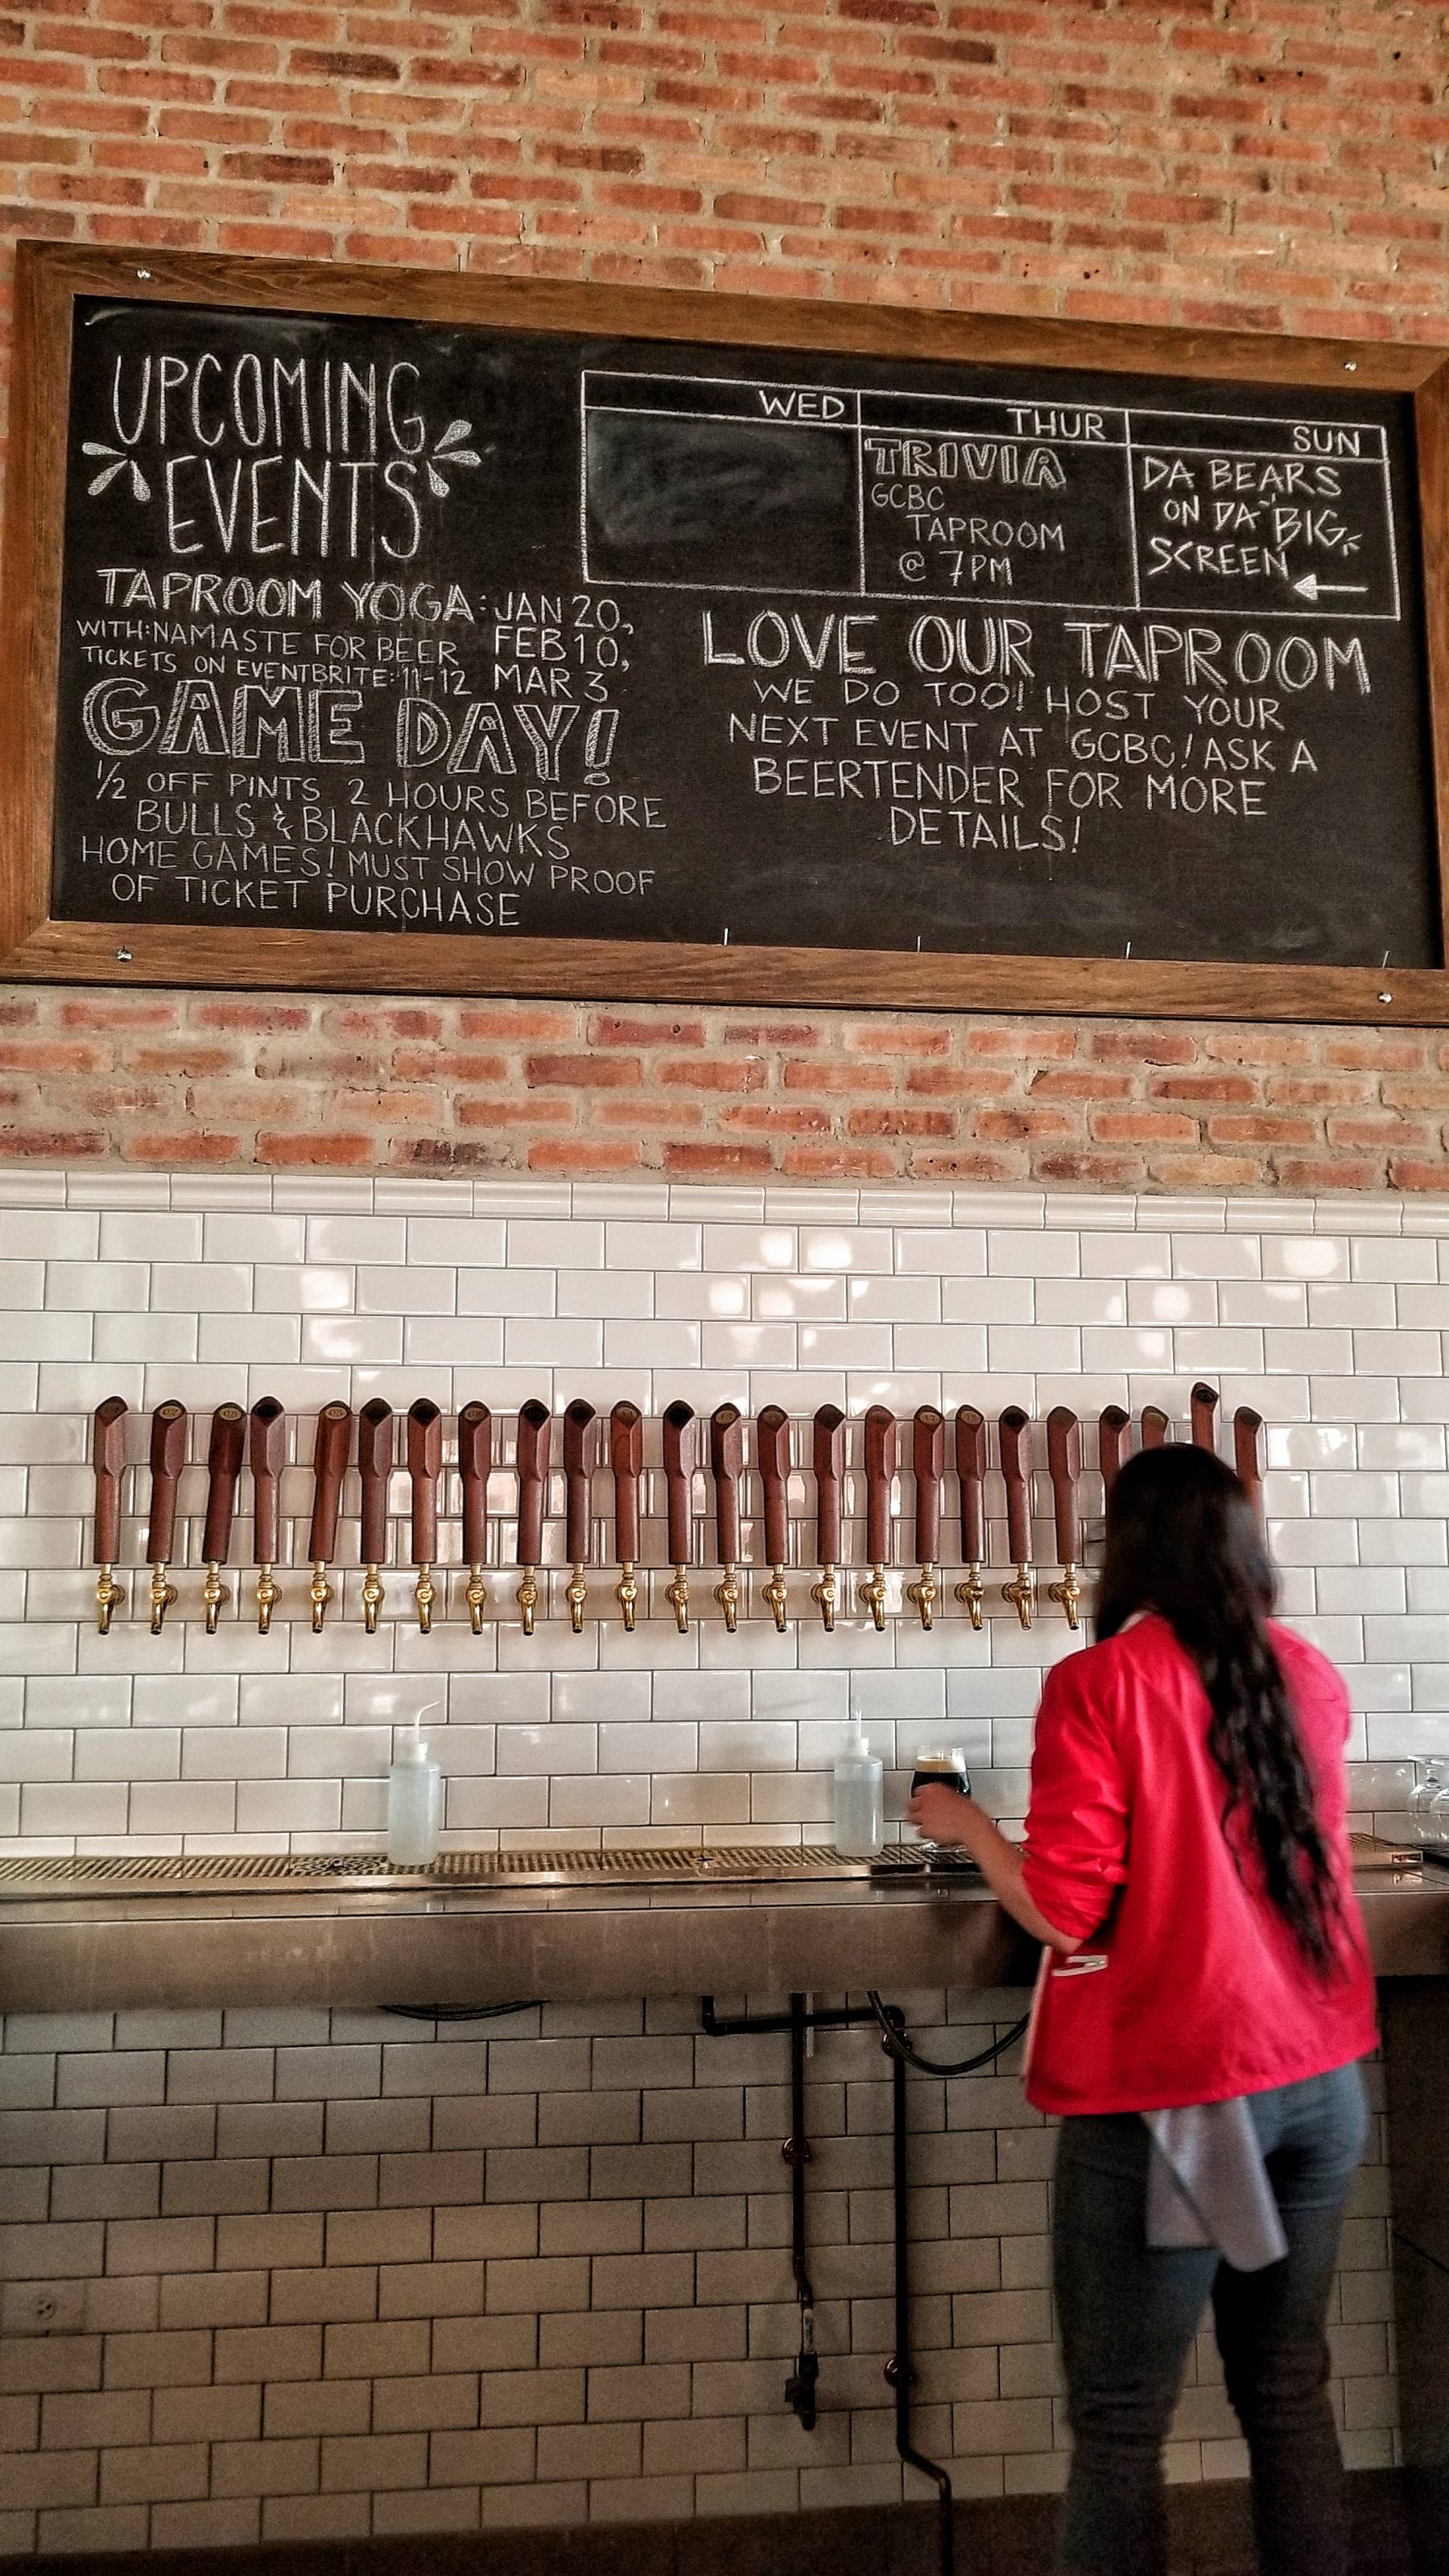 UPCOMING
EVENTS
TAPROOM YOGA: JAN 20,
WITH: NAMASTE FOR BEER FEB 10,
TICKETS ON EVENTBRITE: 11-12 MAR 3
GAME DAY!
1/2 OFF PINTS 2 HOURS BEFORE
BULLS & BLACKHAWKS
HOME GAMES! MUST SHOW PROOF
OF TICKET PURCHASE
WED
THUR
TRIVIA
GCBC
TAPROOM
@ 7PM
SUN
DA BEARS
ON DA BIG
SCREEN
LOVE OUR TAPROOM
WE DO TOO! HOST YOUR
NEXT EVENT AT GCBC! ASK A
BEERTENDER FOR MORE
DETAILS!
02
03
05